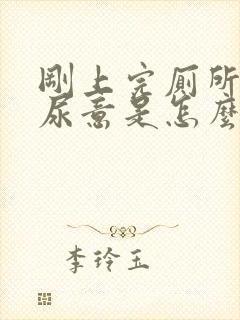 剛上完廁所
尿意是怎麼
李玲玉